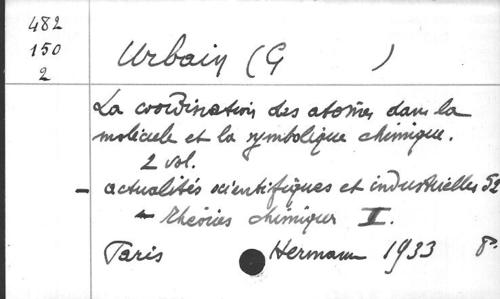 482
150
2
Urbain (G )
La coordination des atomes dans la
molécule et la symbolique chimique.
2 vol.
- actualités scientifiques et industrielles 52
- théories chimiques II.
Paris Hermann 1933 8°